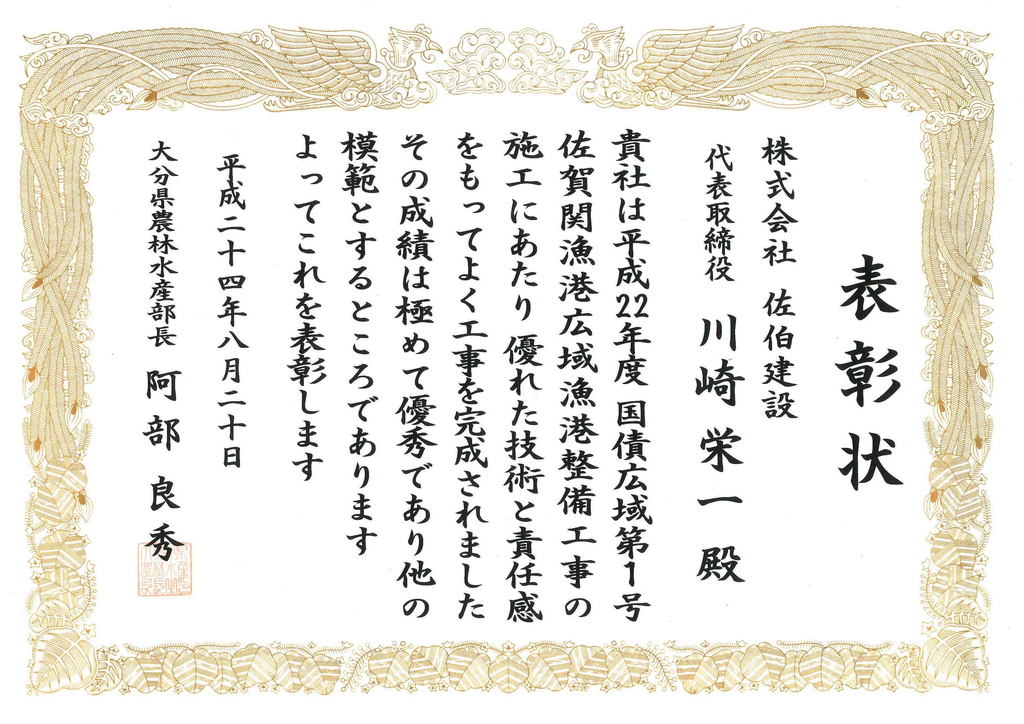 表彰状
株式会社 佐伯建設
代表取締役 川崎栄一 殿
貴社は平成22年度 国債広域第1号
佐賀関漁港広域漁港整備工事の
施工にあたり優れた技術と責任感
をもってよく工事を完成されました
その成績は極めて優秀であり他の
模範とするところであります
よってこれを表彰します
平成二十四年八月二十日
大分県農林水産部長 阿部良秀